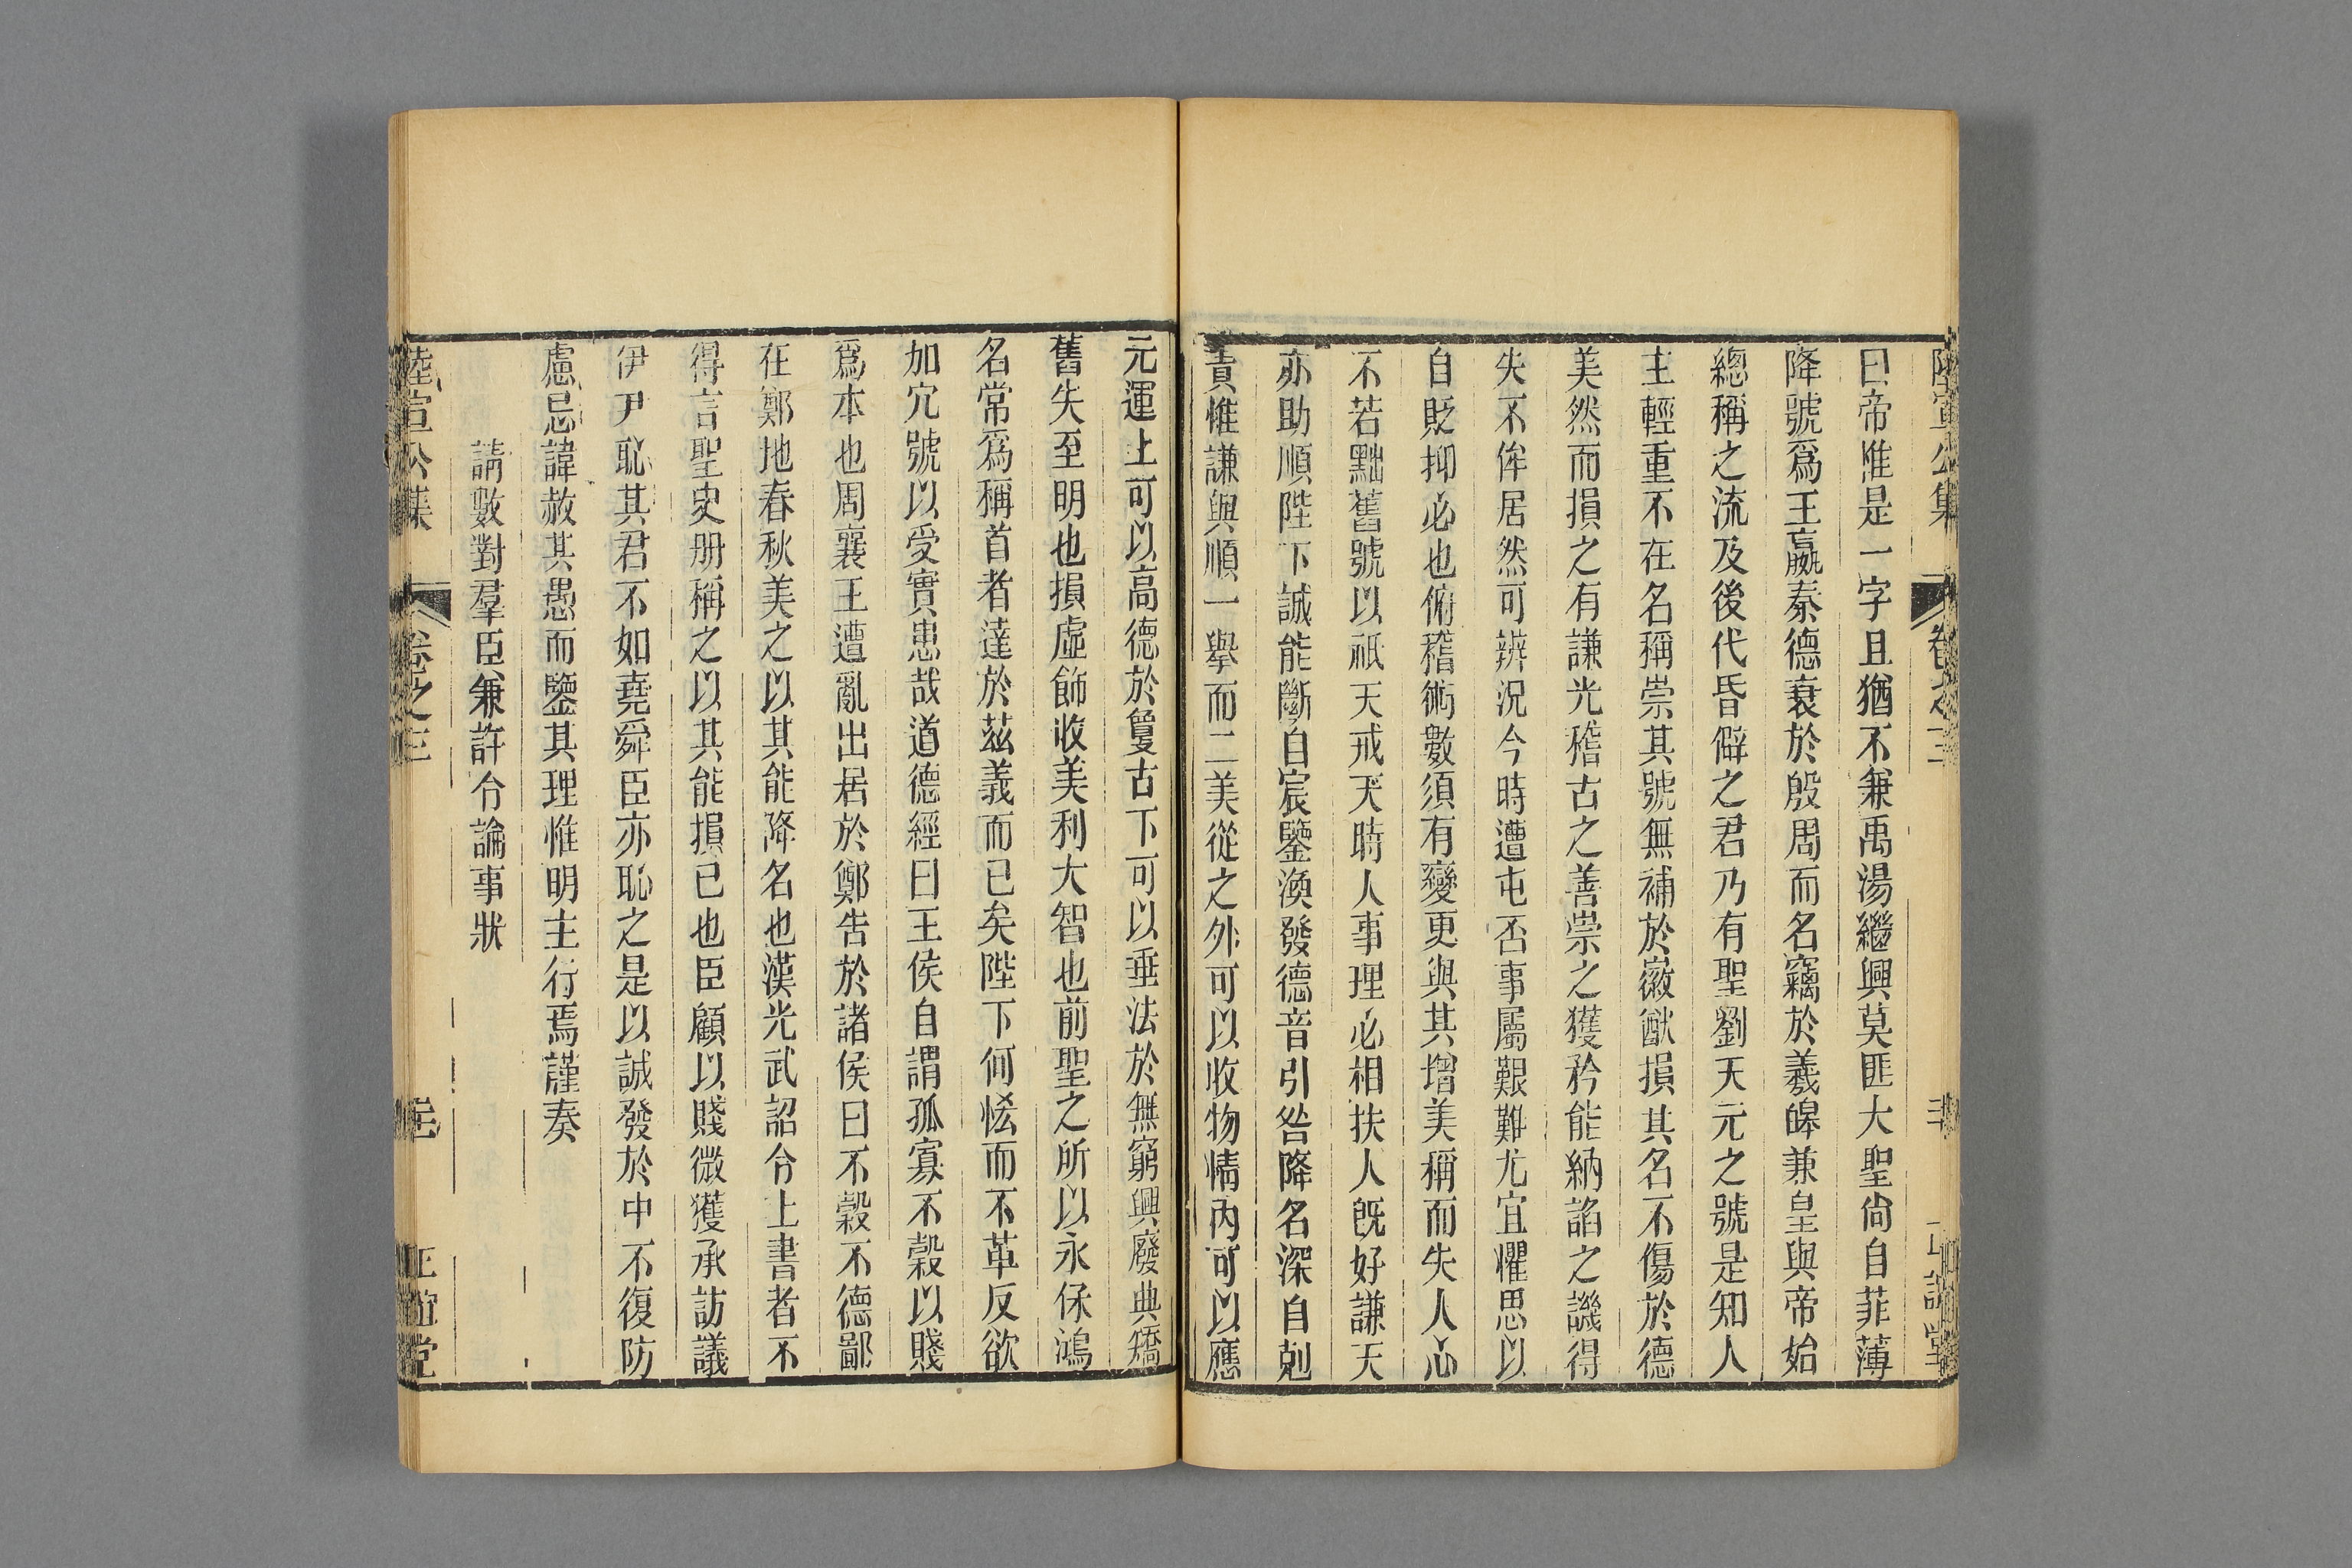 陸宣公集 卷之三 三十 正誼堂
曰帝惟是一字且猶不兼禹湯繼興莫匪大聖尙自菲薄
降號爲王嬴秦德衰於殷周而名竊於羲皞兼皇與帝始
總稱之流及後代昏僻之君乃有聖劉天元之號是知人
主輕重不在名稱崇其號無補於徽猷損其名不傷於德
美然而損之有謙光稽古之善崇之獲矜能納諂之譏得
失不侔居然可辨況今時遭屯否事屬艱難尤宜懼思以
自貶抑必也俯稽術數須有變更與其增美稱而失人心
不若黜舊號以祇天戒天時人事理必相扶人旣好謙天
亦助順陛下誠能斷自宸鑒渙發德音引咎降名深自剋
責惟謙與順一舉而二美從之外可以收物情內可以應
元運上可以高德於敻古下可以垂法於無窮興廢典矯
舊失至明也損虛飾收美利大智也前聖之所以永保鴻
名常爲稱首者達於茲義而已矣陛下何恡而不革反欲
加冗號以受實患哉道德經曰王侯自謂孤寡不穀以賤
爲本也周襄王遭亂出居於鄭告於諸侯曰不穀不德鄙
在鄭地春秋美之以其能降名也漢光武詔令上書者不
得言聖史册稱之以其能損己也臣顧以賤微獲承訪議
伊尹恥其君不如堯舜臣亦恥之是以誠發於中不復防
慮忌諱赦其愚而鑒其理惟明主行焉謹奏
請數對羣臣兼許令論事狀
陸宣公集 卷之三 正誼堂